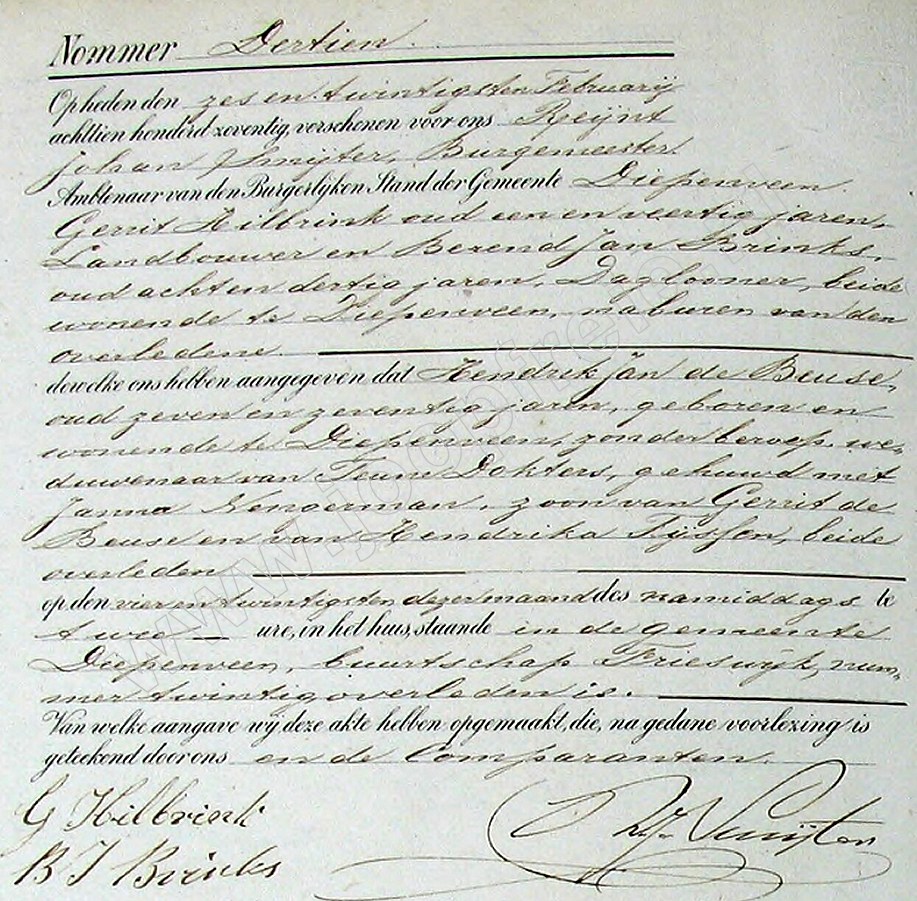 Nommer Dertien
Op heden den zes en twintigsten Februarij
achttien honderd zeventig, verschenen voor ons Reijnt
Johan Smijter, Burgemeester.
Ambtenaar van den Burgerlijken Stand der Gemeente Diepenveen.
Gerrit Hilbrink oud een en veertig jaren,
Landbouwer en Berend Jan Brinks,
oud acht en dertig jaren, Daglooner, beide
wonende te Diepenveen, naburen van den
overledene.
dewelke ons hebben aangegeven dat Hendrik Jan de Beuse,
oud zeven en zeventig jaren, geboren en
wonende te Diepenveen, zonder beroep, we-
duwenaar van Teune Dokters, gehuwd met
Janna Nengerman, zoon van Gerrit de
Beuse en van Hendrika Tijssen, beide
overleden
op den vier en twintigsten dezer maand des namiddags te
twee ure, in het huis, staande in de gemeente
Diepenveen, buurtschap Frieswijk, num-
mer twintig overleden is.
Van welke aangave wij deze akte hebben opgemaakt, die, na gedane voorlezing is
geteekend door ons en de Comparanten.
G Hilbrink
B J Brinks